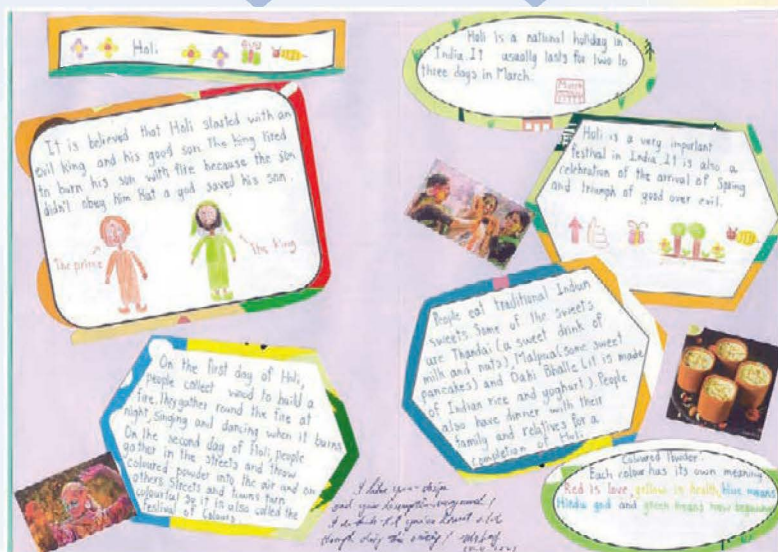 Holi
It is believed that Holi started with an
evil King and his good son. The King tired
to burn his son with fire because the son
didn't obey him. But a god saved his son.
The prince
The King
On the first day of Holi,
people collect wood to build a
fire. They gather round the fire at
night, singing and dancing when it burns
On the second day of Holi, people
gather in the streets and throw
coloured powder into the air and on
others. Streets and towns turn
colourful so it is also called the
Festival of Colours.
Holi is a national holiday in
India. It usually lasts for two to
three days in March.
March
Holi is a very important
festival in India. It is also a
celebration of the arrival of Spring
and triumph of good over evil.
People eat traditional Indian
sweets. Some of the sweets
are Thandai (a sweet drink of
milk and nuts), Malpua (some sweet
pancakes) and Dahi Bhalle (it is made
of Indian rice and yoghurt). People
also have dinner with their
family and relatives for a
completion of Holi.
Coloured Powder:
Each colour has its own meaning
Red is love, yellow is health, blue means
Hindu god and green means new beginning
I like your design
and your description very much!